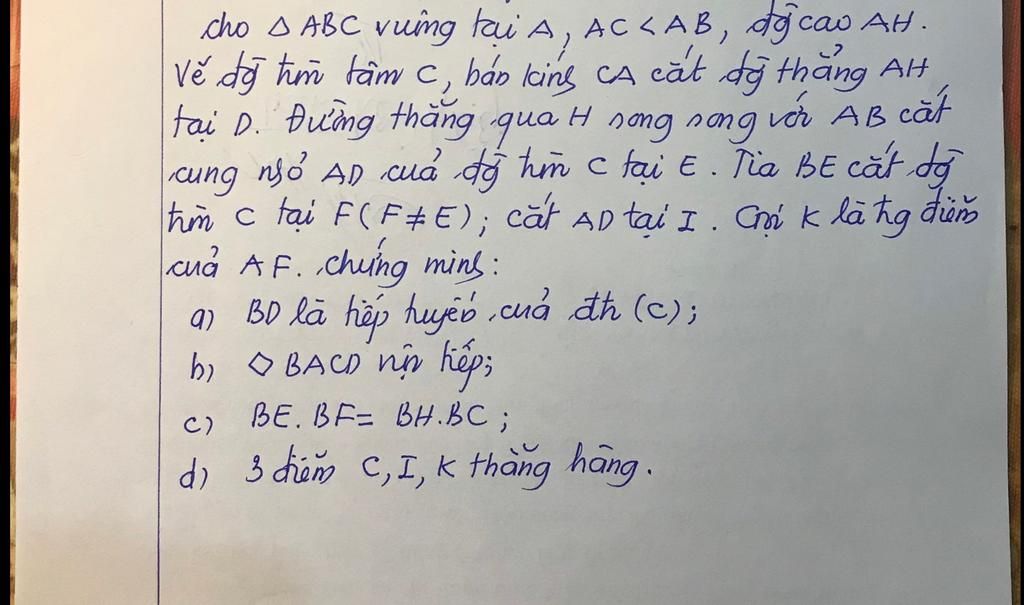 cho △ ABC vuông tại A, AC < AB, đg̀ cao AH.
Vẽ đg̀ tròn tâm C, bán kính CA cắt đg̀ thẳng AH
tại D. Đường thẳng qua H song song với AB cắt
cung nhỏ AD của đg̀ tròn C tại E. Tia BE cắt đg̀
tròn C tại F (F ≠ E); cắt AD tại I. Gọi K là tg điểm
của AF. chứng minh:
a) BD là tiếp tuyến của đtr (C);
b) ◇ BACD nội tiếp;
c) BE. BF = BH.BC ;
d) 3 điểm C, I, K thẳng hàng.